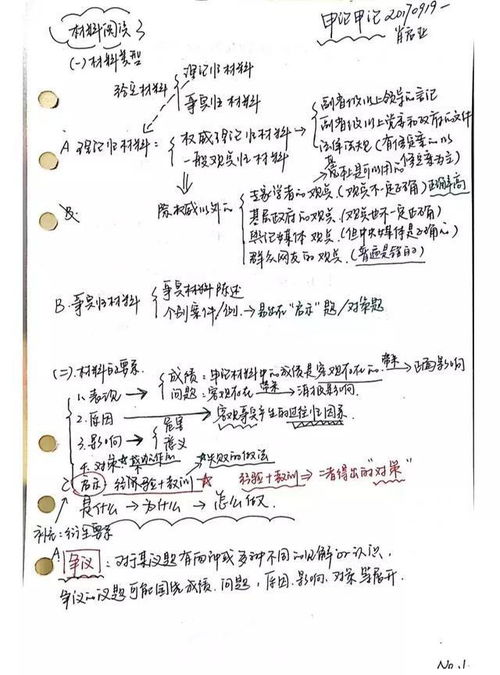 材料阅读
申记申论 20170919-
肖启业
(一)材料类型
理论性材料
给定材料
事实性材料
副省级以上领导的言论
副省级以上党委和政府的文件
A 理论性材料:
权威理论性材料
一般观点性材料
除权威以外的
专家学者的观点(观点不一定正确)正确高
基层政府的观点(观点也不一定正确)
舆论媒体观点(但中央媒体是正确的)
群众网友的观点(普遍是错的)
B.
B.事实性材料
事实材料陈述
个别案件/例 → 易出在"启示"题/对策题
(二)材料的要素
1.表现 →
成绩:申论材料中的成绩是客观存在的 带来 → 正面影响
问题:客观存在 带来 → 消极影响
2.原因 → 客观事实产生的因素
3.影响 →
危害
意义
4.对策
失败的做法
启示 经验+教训 ☆ 经验+教训 ⇒ 二者得出的"对策"
是什么 → 为什么 → 怎么做
补充:衍生要素
A.争议:对于某议题有两种或多种不同的见解or认识,
争议的议题可能围绕成绩、问题,原因、影响、对策等展开.
No.1